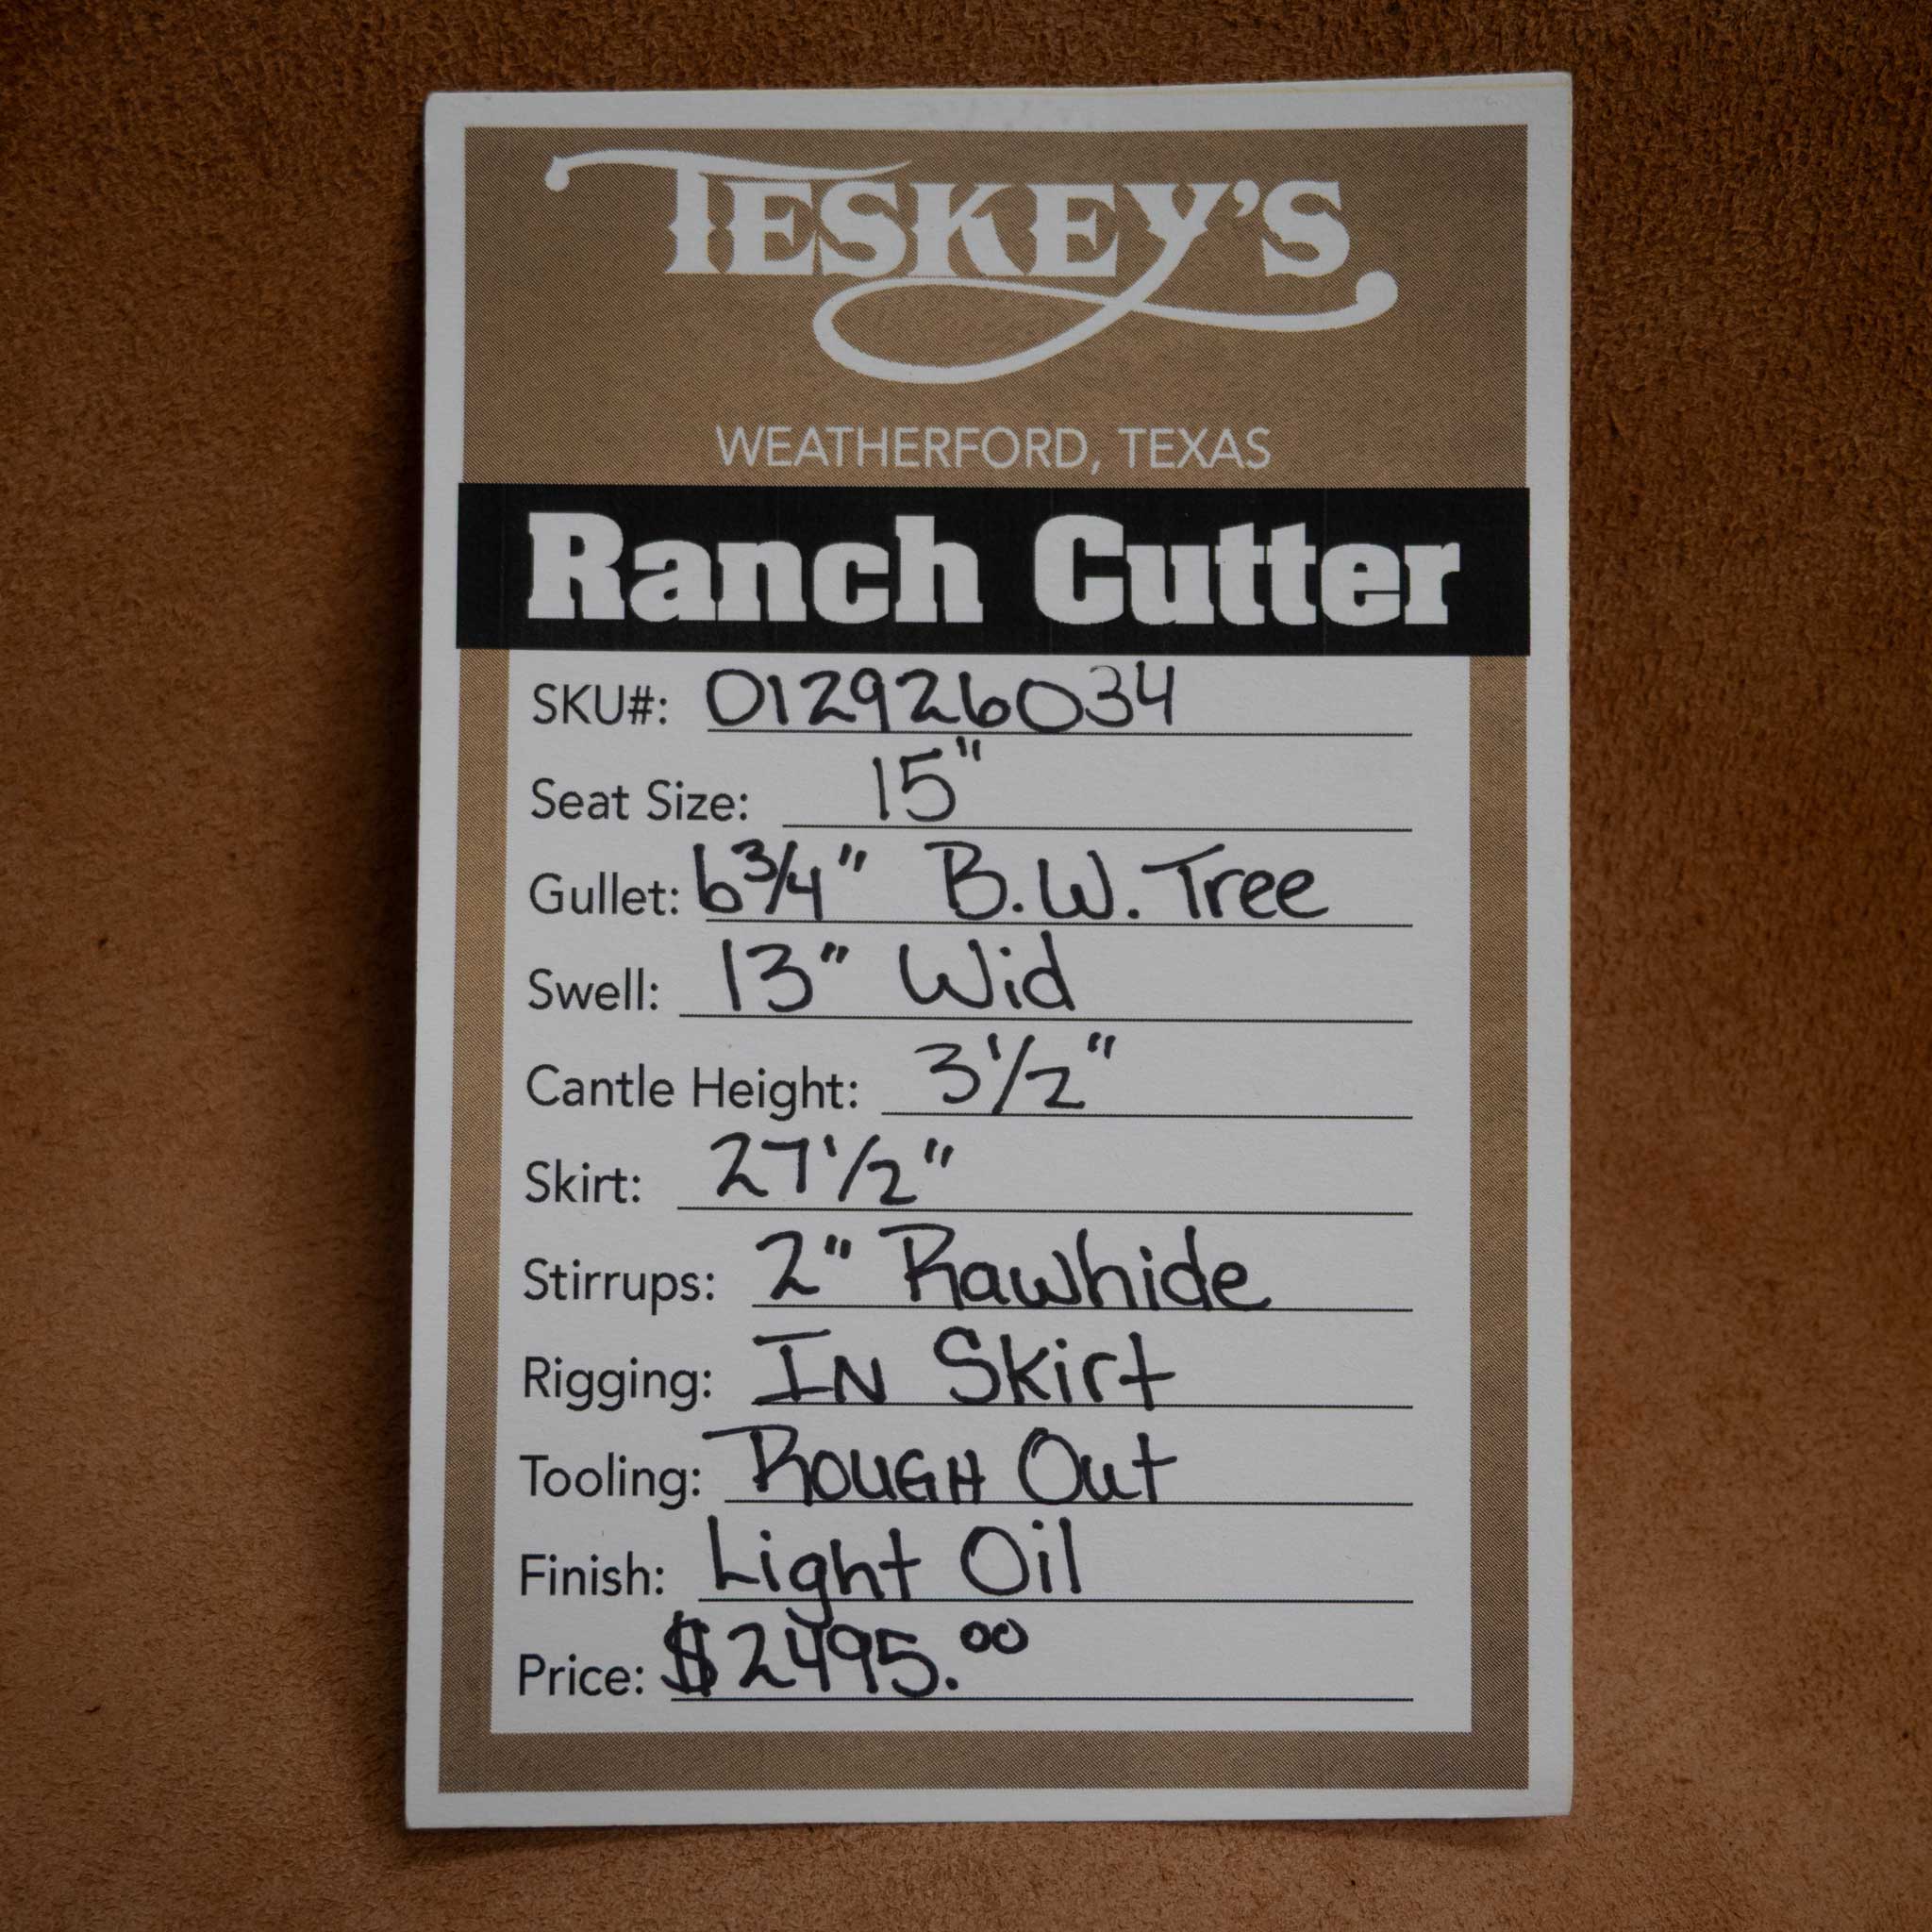 TESKEY'S
WEATHERFORD, TEXAS
Ranch Cutter
SKU#: 012926034
Seat Size: 15"
Gullet: 6 3/4" B.W. Tree
Swell: 13" Wid
Cantle Height: 3 1/2"
Skirt: 27 1/2"
Stirrups: 2" Rawhide
Rigging: IN Skirt
Tooling: ROUGH Out
Finish: Light Oil
Price: $2495.00